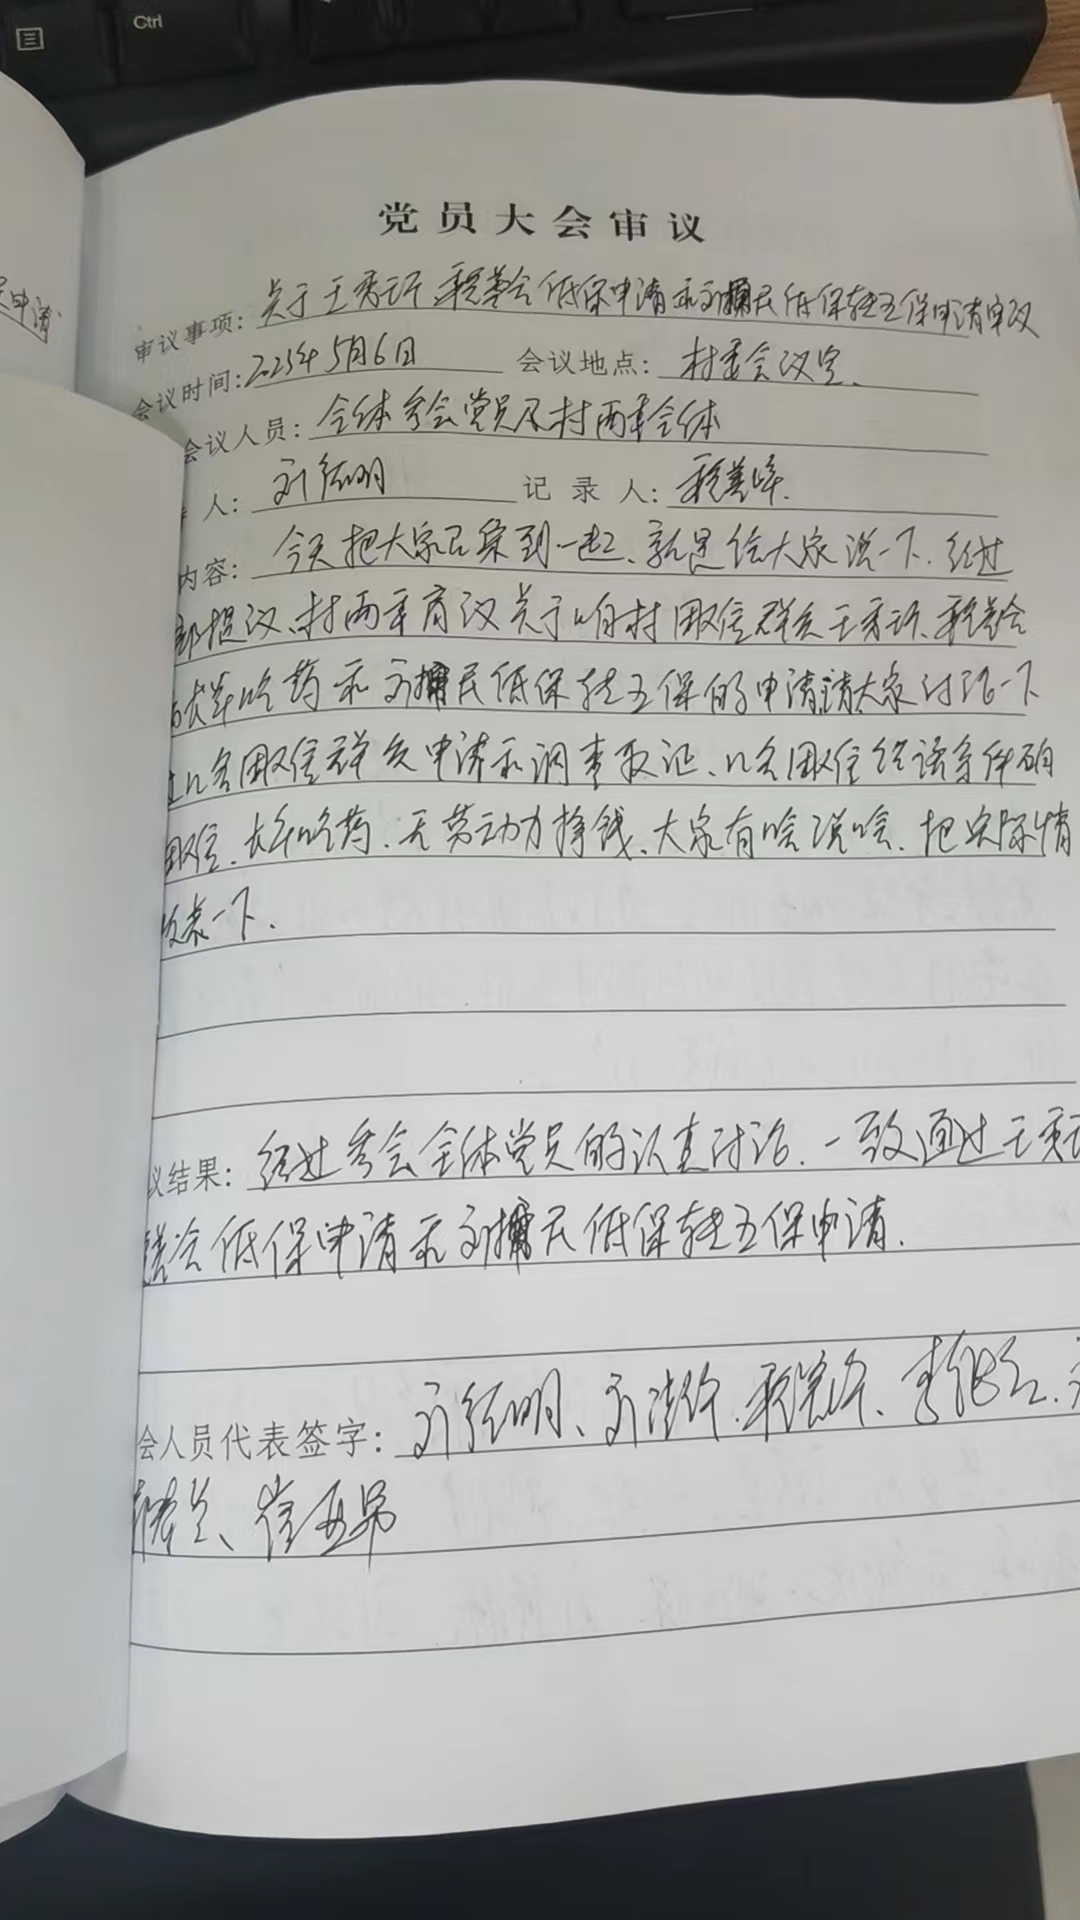 Ctrl
申请
党员大会审议
审议事项：关于王秀 会低保申请和刘 民低保转五保申请审议
会议时间：2023年5月6日 会议地点：村委会议室、
会议人员：全体参会党员及村两委全体
人：刘 明 记录人：程
内容：今天把大家召集到一起、就是给大家说一下、经过
部提议、村两委商议关于咱村困难群众王秀 、程 会
长年吃药和刘 民低保转五保的申请请大家讨论一下
过几名困难群众申请和调查取证、几名困难 条件确
困难、长年吃药、无劳动力挣钱、大家有啥说啥、把实际情
发表一下、
议结果：经过参会全体党员的认真讨论、一致通过王秀
会低保申请和刘 民低保转五保申请、
会人员代表签字：刘 明、刘 、程 、李
兰、崔